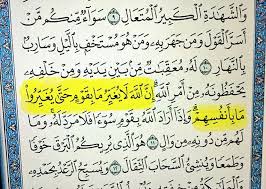 وَالشَّهَٰدَةِ الْكَبِيرُ الْمُتَعَالِ ٩ سَوَآءٌ مِّنكُم مَّنْ
أَسَرَّ الْقَوْلَ وَمَن جَهَرَ بِهِۦ وَمَنْ هُوَ مُسْتَخْفٍۭ بِالَّيْلِ وَسَارِبٌۢ
بِالنَّهَارِ ١٠ لَهُۥ مُعَقِّبَٰتٌ مِّنۢ بَيْنِ يَدَيْهِ وَمِنْ خَلْفِهِۦ
يَحْفَظُونَهُۥ مِنْ أَمْرِ اللَّهِ إِنَّ اللَّهَ لَا يُغَيِّرُ مَا بِقَوْمٍ حَتَّىٰ يُغَيِّرُوا۟
مَا بِأَنفُسِهِمْ وَإِذَآ أَرَادَ اللَّهُ بِقَوْمٍ سُوٓءًا فَلَا مَرَدَّ لَهُۥ وَمَا
لَهُم مِّن دُونِهِۦ مِن وَالٍ ١١ هُوَ الَّذِي يُرِيكُمُ الْبَرْقَ خَوْفًا
وَطَمَعًا وَيُنشِئُ السَّحَابَ الثِّقَالَ ١٢ وَيُسَبِّحُ الرَّعْدُ بِحَمْدِهِۦ